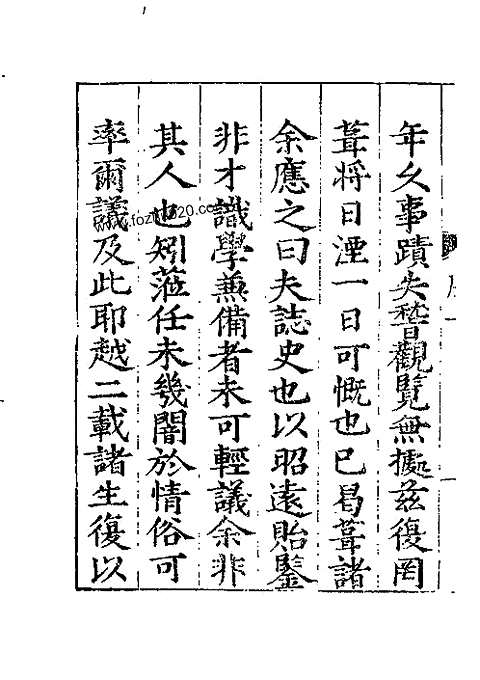 年久事蹟失稽觀覽無據茲復罔
葺將日湮一日可慨也已曷葺諸
余應之曰夫誌史也以昭遠貽鑒
非才識學兼備者未可輕議余非
其人也矧蒞任未幾闇於情俗可
率爾議及此耶越二載諸生復以